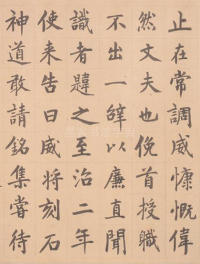 止在常調咸慷慨偉
然文夫也俛首授職
不出一辞以廉直聞
識者韙之至治二年
使来告曰咸将刻石
神道敢請銘集嘗待